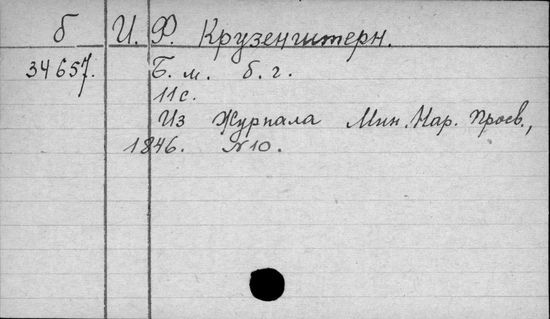 б И. Ф. Крузенштерн.
34657. Б. м. б. г.
11с.
Из Журнала Мин. Нар. Просв.,
1846. №10.